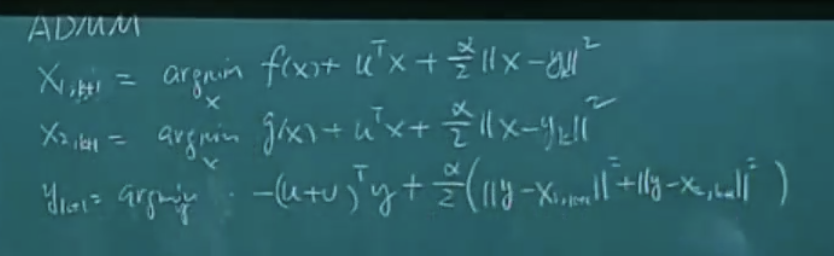 ADMM
x_{1,k+1} = argmin_x f(x) + u^T x + α/2 ||x - y_k||^2
x_{2,k+1} = argmin_x g(x) + u^T x + α/2 ||x - y_k||^2
y_{k+1} = argmin_y -(u+v)^T y + α/2 (||y - x_{1,k+1}||^2 + ||y - x_{2,k+1}||^2)